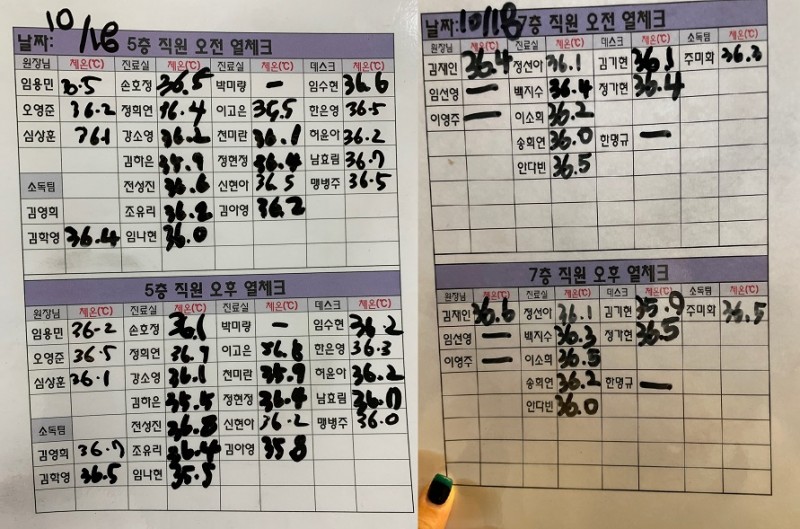 날짜: 10/18 5층 직원 오전 열체크
원장님 체온(℃) 진료실 체온(℃) 진료실 체온(℃) 데스크 체온(℃)
임용민 손호정 36.5 박미량 — 임수현 36.6
오영준 36.2 정희연 36.4 이고은 35.5 한은영 36.5
심상훈 36.1 강소영 36.2 천미란 36.1 허윤아 36.2
김하은 35.9 정현정 36.4 남효림 36.7
소독팀 전성진 36.6 신현아 36.5 맹병주 36.5
김영희 조유리 36.2 김아영 36.2
김학영 36.4 임나현 36.0
5층 직원 오후 열체크
원장님 체온(℃) 진료실 체온(℃) 진료실 체온(℃) 데스크 체온(℃)
임용민 36-2 손호정 36.1 박미량 — 임수현 36.2
오영준 36.5 정희연 36.7 이고은 36.8 한은영 36.3
심상훈 36.1 강소영 36.1 천미란 35.9 허윤아 36.2
김하은 35.5 정현정 36.4 남효림 36.7
소독팀 전성진 36.8 신현아 36.2 맹병주 36.0
김영희 36.7 조유리 36.4 김아영 35.8
김학영 36.5 임나현 35.5
날짜: 10/18 7층 직원 오전 열체크
원장님 체온(℃) 진료실 체온(℃) 데스크 체온(℃) 소독팀 체온(℃)
김재인 36.4 정선아 36.1 김기현 36.1 주미화 36.3
임선영 — 백지수 36.4 정가현 36.4
이영주 — 이소희 36.2
송희연 36.0 한명규 —
안다빈 36.5
7층 직원 오후 열체크
원장님 체온(℃) 진료실 체온(℃) 데스크 체온(℃) 소독팀 체온(℃)
김재인 36.6 정선아 36.1 김기현 35.9 주미화 36.5
임선영 — 백지수 36.3 정가현 36.5
이영주 — 이소희 36.5
송희연 36.2 한명규 —
안다빈 36.0